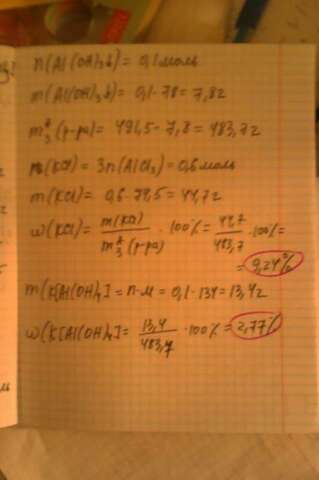 n(Al(OH)₃↓) = 0,1 моль
m(Al(OH)₃↓) = 0,1·78 = 7,8г
m₃(р-ра) = 491,5 - 7,8 = 483,7г
n(KCl) = 3n(AlCl₃) = 0,6 моль
m(KCl) = 0,6·74,5 = 44,7г
w(KCl) = m(KCl) / m₃(р-ра) · 100% = 44,7 / 483,7 · 100% =
= 9,24%
m(K[Al(OH)₄] = n·M = 0,1·134 = 13,4г
w(K[Al(OH)₄] = 13,4 / 483,7 · 100% = 2,77%